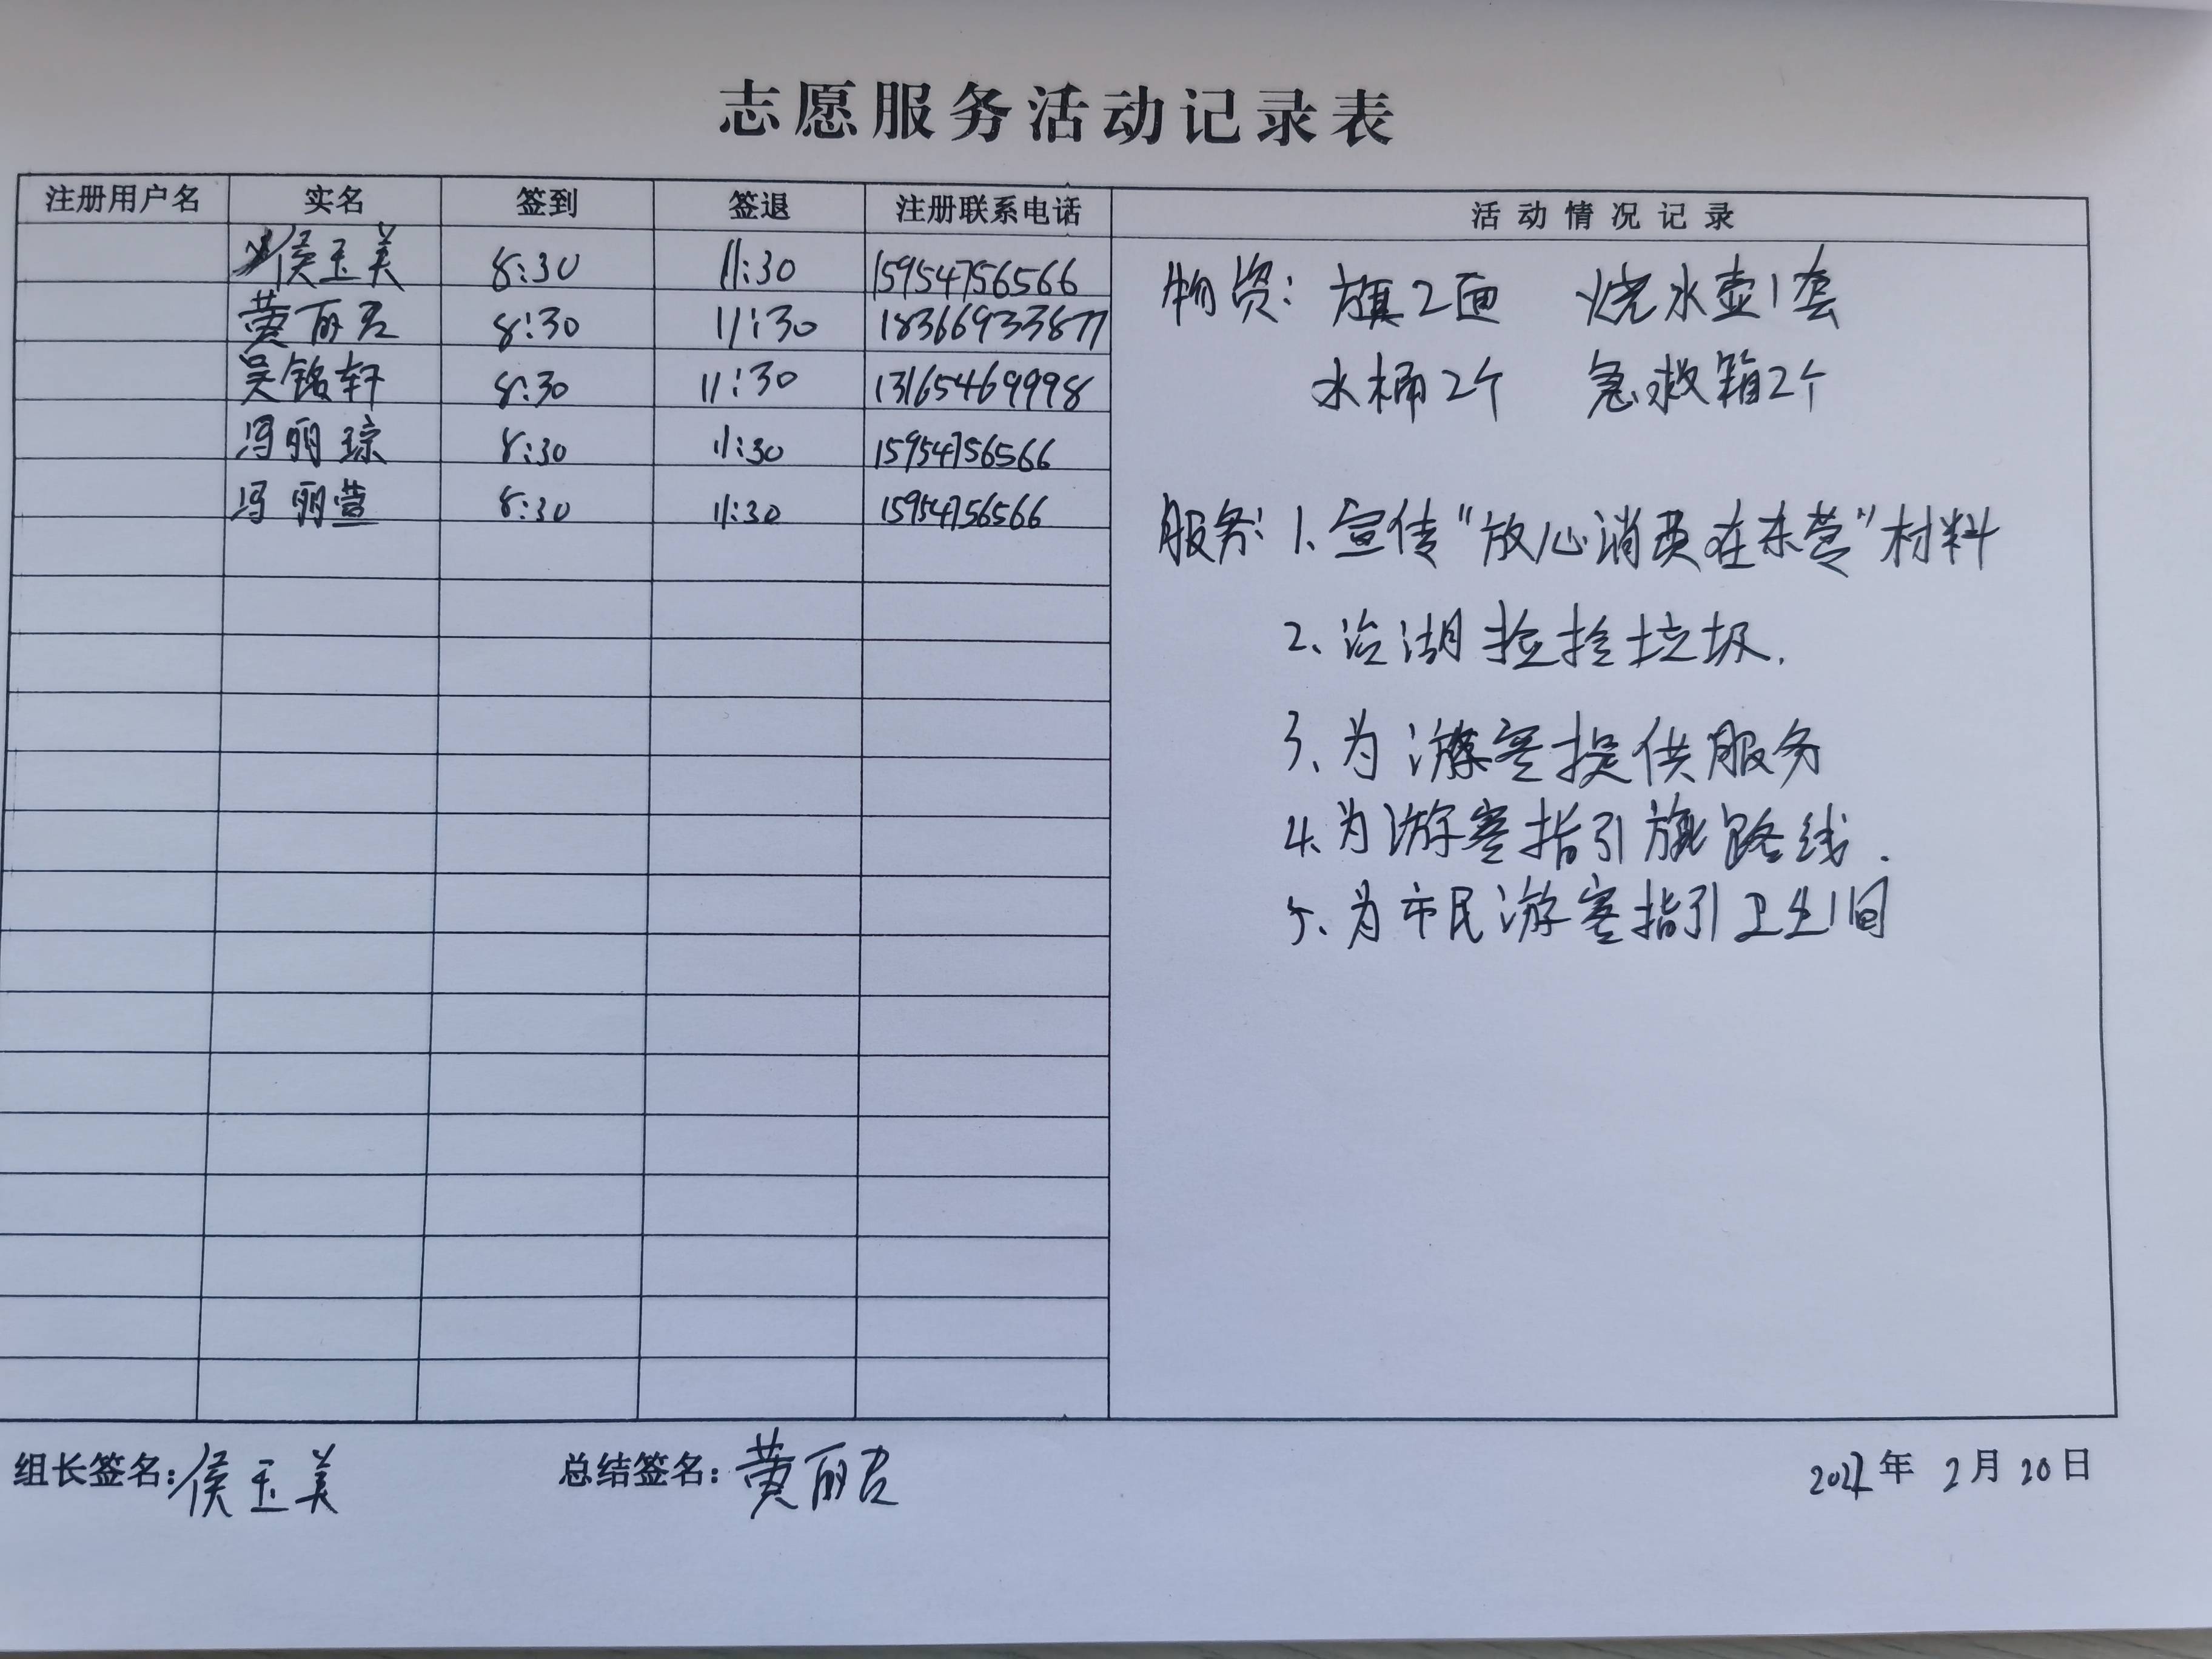 志愿服务活动记录表
注册用户名 实名 签到 签退 注册联系电话 活动情况记录
侯玉美 8:30 11:30 15954756566
黄丽君 8:30 11:30 18366933877
吴铭轩 8:30 11:30 13165469998
冯丽琼 8:30 11:30 15954756566
冯丽萱 8:30 11:30 15954756566
物资: 旗2面 烧水壶1套
水桶2个 急救箱2个
服务: 1、宣传"放心消费在东营"材料
2、沿湖捡拾垃圾.
3、为游客提供服务
4、为游客指引旅路线.
5、为市民游客指引卫生间
组长签名:侯玉美 总结签名:黄丽君 2022年2月20日